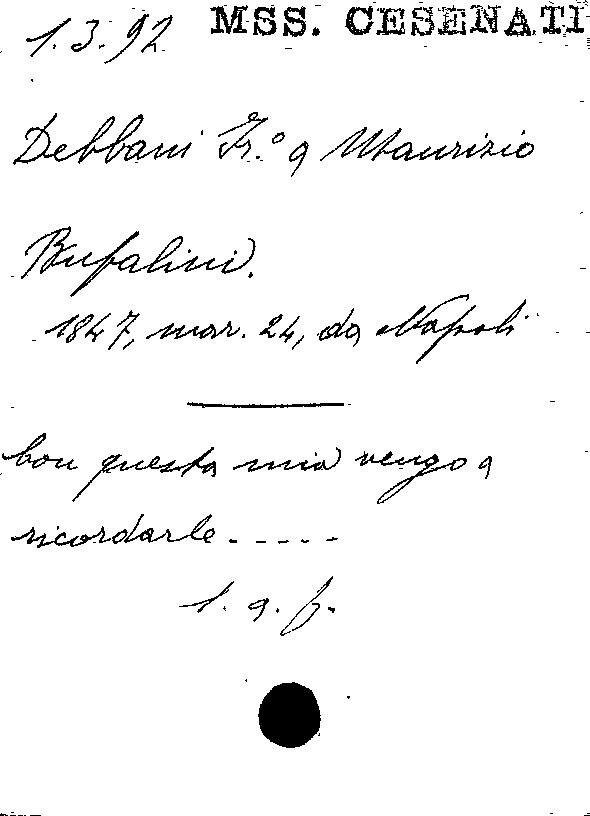 1.3.92 MSS. CESENATI
Debbani Fr.º a Maurizio
Bufalini.
1847, mar. 24, da Napoli
Con questa mia vengo a
ricordarle - - - - -
1. a. f.